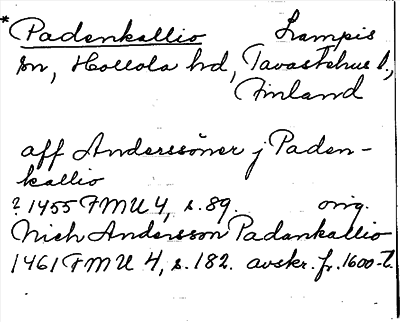 * Padenkallio Lampis
sn, Hollola hd, Tavastehus l.,
Finland
aff Anderssöner j Paden-
kallio
? 1455 FMU 4, s. 89. orig.
Nich Andersson Padankallio
1461 FMU 4, s. 182. avskr. fr. 1600-t.